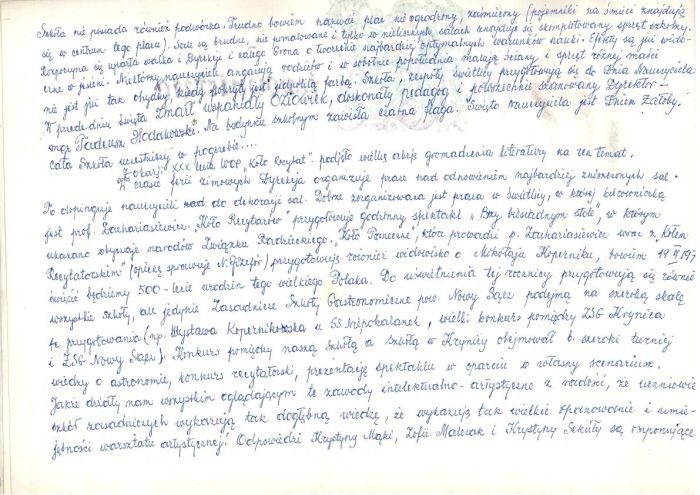 Szkoła nie posiada również podwórka. Trudno bowiem nazwać plac nie ogrodzony, zaśmiecony (pojemniki na śmieci znajdują
się w centrum tego placu). Sale są brudne, nie pomalowane i tylko w nielicznych salach znajduje się skompletowany sprzęt szkolny.
Rozpoczyna się uparta walka i Dyrekcji i całego Grona o tworzenie najbardziej optymalnych warunków nauki. Efekty są już wido-
czne w jesieni. Niektórzy nauczyciele angażują rodziców i w sobotnie popołudnia malują ściany i sprzęt różnej maści
nie jest już tak ohydny, kiedy pokryty jest jednolitą farbą. Szkoła, zespoły, świetlicy przygotowują się do Dnia Nauczyciela
W przededniu święta zmarł wspaniały Człowiek, doskonały pedagog i powszechnie szanowany Dyrektor –
mgr Tadeusz Hodakowski. Na budynku szkolnym zawisła czarna flaga. Święto Nauczyciela jest Dniem Żałoby.
cała Szkoła uczestniczy w pogrzebie....
Z okazji XXX lecia WOP „Koło Recytat." podjęło wielką akcję gromadzenia literatury na ten temat.
W czasie ferii zimowych Dyrekcja organizuje prace nad odnowieniem najbardziej zniszczonych sal.
To dopinguje nauczycieli nad do dekoracji sal. Dobrze zorganizowana jest praca w świetlicy, w której kierowniczką
jest prof. Zachariasiewicz. „Koło Recytatorów" przygotowuje godzinny spektakl „Przy biesiadnym stole", w którym
ukazano obyczaje narodów Związku Radzieckiego. „Koło Taneczne", które prowadzi p. Zachariasiewicz wraz z „Kołem
Recytatorskim" (opiekę sprawuje N. Józefów) przygotowują również widowisko o Mikołaju Koperniku, bowiem 19 II 197
święcić będziemy 500-lecie urodzin tego wielkiego Polaka. Do uświetnienia tej rocznicy przygotowują się również
wszystkie szkoły, ale jedynie Zasadnicze Szkoły Gastronomiczne pow. Nowy Sącz podejmą na szeroką skalę
te przygotowania (np. Wystawa Kopernikowska u SS Niepokalanek, wielki konkurs pomiędzy ZSG Krynica
i ZSG Nowy Sącz). Konkurs pomiędzy naszą Szkołą a szkołą w Krynicy obejmował b. szeroki turniej
wiedzy o astronomie, konkurs recytatorski, prezentację spektaklu w oparciu o własny scenariusz.
Jakże działały nam wszystkim oglądającym te zawody intelektualno-artystyczne z radości, że uczniowie
szkół zasadniczych wykazują tak dogłębną wiedzę, że wykazują tak wielkie opanowanie i umie-
jętności warsztatu artystycznego! Odpowiedzi Krystyny Mąki, Zofii Malczak i Krystyny Sekuły są imponujące